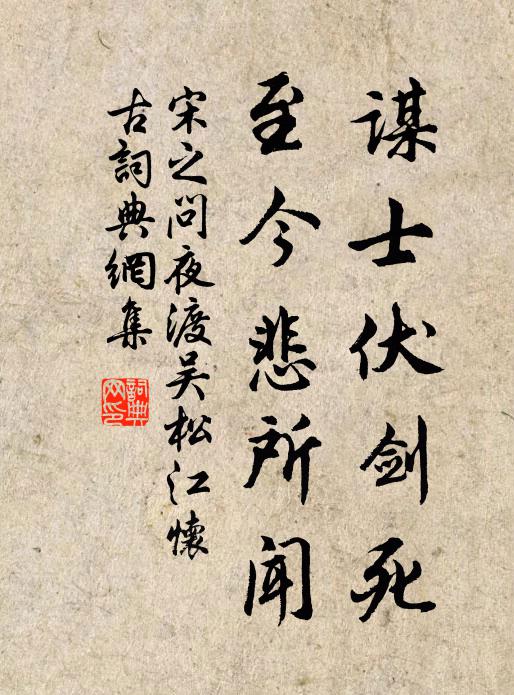 谋士伏剑死
至今悲所闻
宋之问夜渡吴松江怀
古词典網集
词典
网印